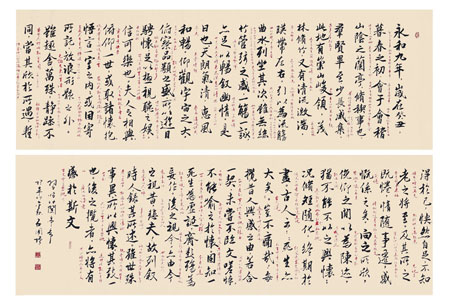 永和九年歲在癸丑
暮春之初會于會稽
山陰之蘭亭脩禊事也
群賢畢至少長咸集
此地有崇山峻領茂
林脩竹又有清流激湍
映帶左右引以為流觴
曲水列坐其次雖無絲
竹管弦之盛一觴一詠
亦足以暢敘幽情是
日也天朗氣清惠風
和暢仰觀宇宙之大
俯察品類之盛所以遊目
騁懷足以極視聽之娛
信可樂也夫人之相與
俯仰一世或取諸懷抱
悟言一室之內或因寄
所託放浪形骸之外
雖趣舍萬殊靜躁不
同當其欣於所遇暫
得於己快然自足不知
老之將至及其所之
既惓情隨事遷感
慨係之矣向之所欣
俛仰之間以為陳迹
猶不能不以之興懷
況脩短隨化終期於
盡古人云死生亦
大矣豈不痛哉每
攬昔人興感之由若合
一契未嘗不臨文嗟悼
不能喻之於懷固知一
死生為虛誕齊彭殤為
妄作後之視今亦由今
之視昔悲夫故列敘
時人錄其所述雖世殊
事異所以興懷其致一
也後之攬者亦將有
感於斯文